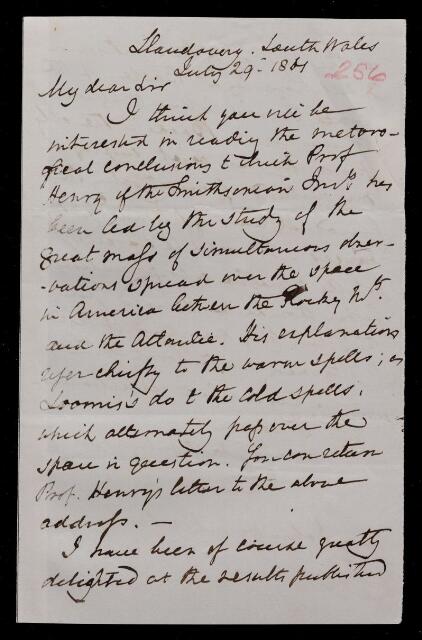 Llandovery. South Wales
July 29. 1861
256
My dear Sir
I think you will be
interested in reading the meteoro-
gical conclusions to which Prof
Henry of the Smithsonian Inst. has
been led by the study of the
great mass of simultaneous obser-
-vations spread over the space
in America between the Rocky Mts.
and the Atlantic. His explanations
refer chiefly to the warm spells; as
Loomis's do to the cold spells,
which alternately pass over the
space in question. You can return
Prof. Henry's letter to the above
address. —
I have been of course greatly
delighted at the results published